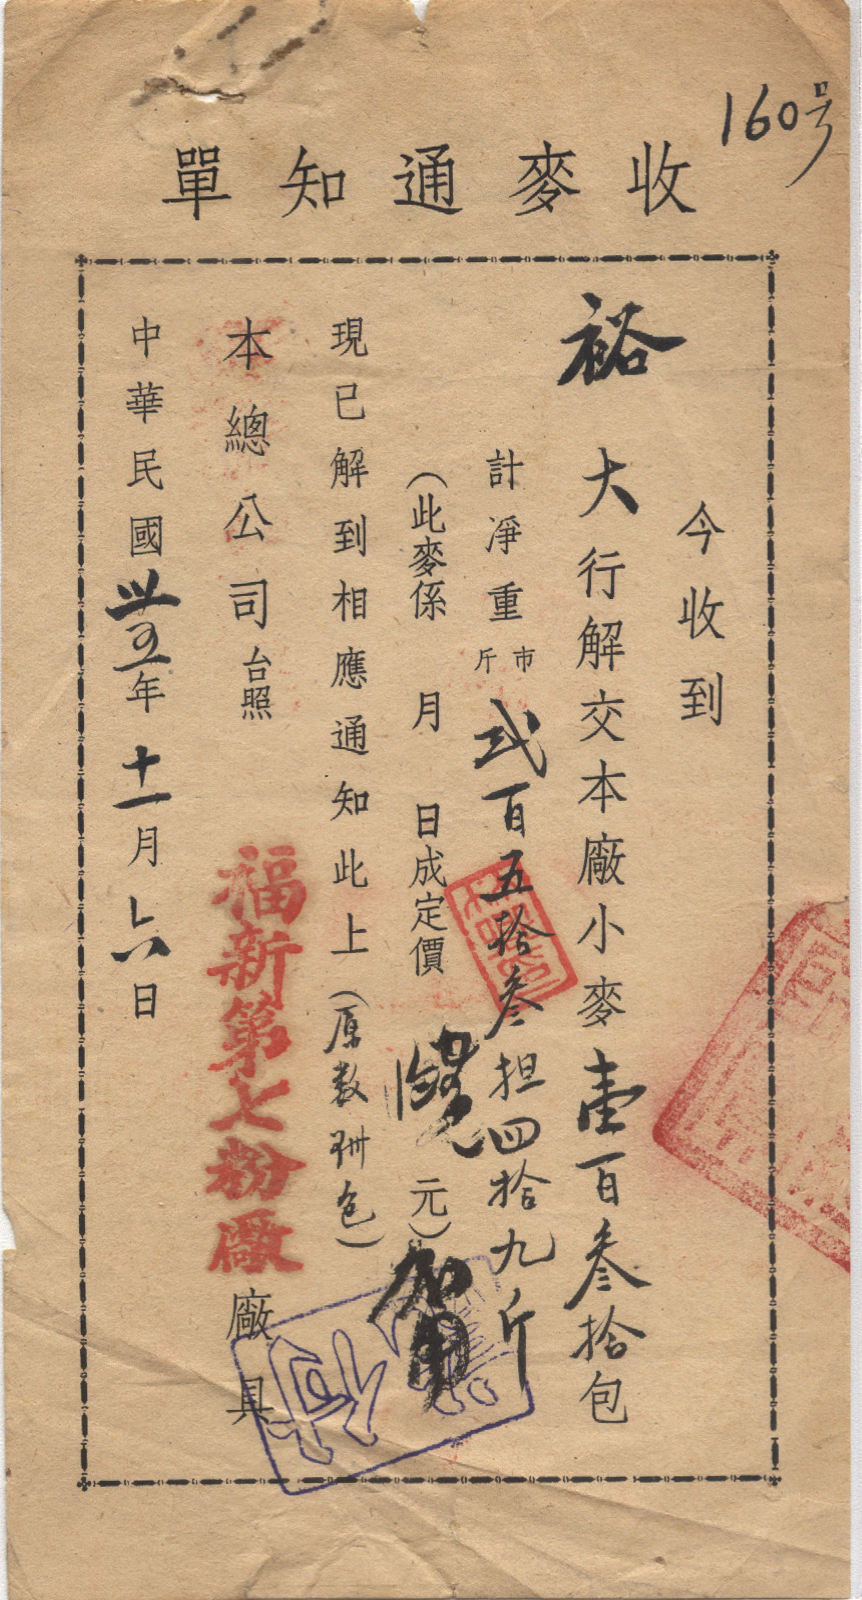 160号
收麥通知單
今收到
裕大行解交本廠小麥壹百叁拾包
計淨重市斤弍百五拾叁担四拾九斤
(此麥係 月 日成定價 元)
現已解到相應通知此上(原数 包)
本總公司台照
福新第七粉廠廠具
中華民國卅五年十一月 日